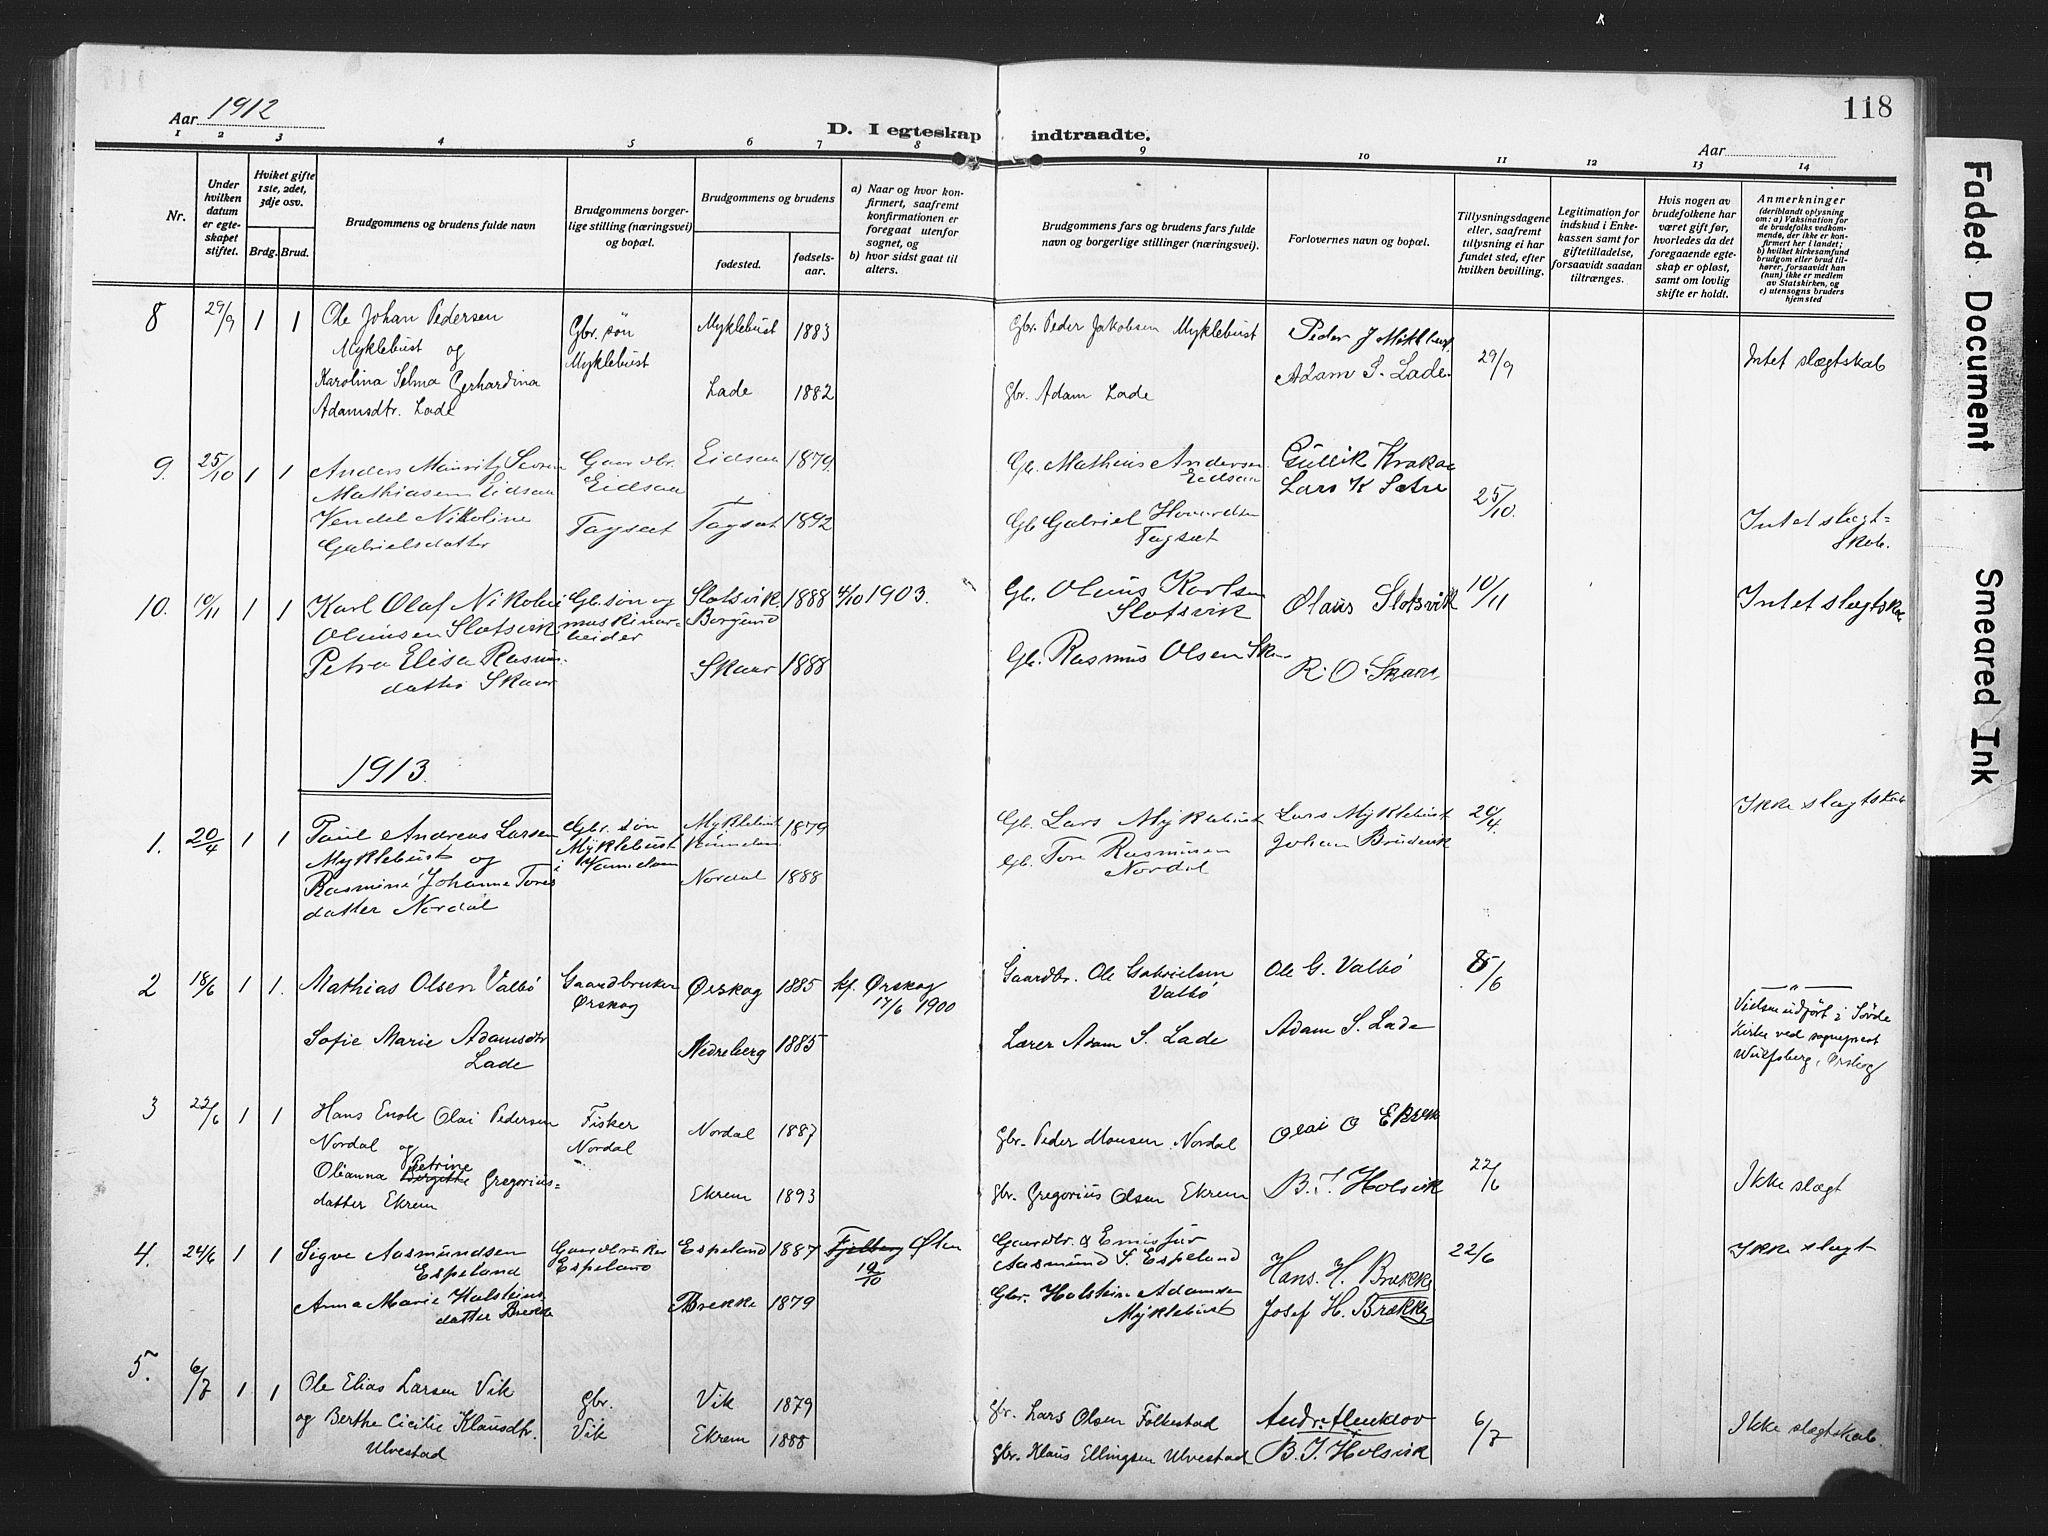 118
Aar 1912
D. I egteskap indtraadte.
Aar
1 2 3 4 5 6 7 8 9 10 11 12 13 14
Nr.
Under hvilken datum er egteskapet stiftet.
Hviket gifte 1ste, 2det, 3dje osv.
Brdg. Brud.
Brudgommens og brudens fulde navn
Brudgommens borgerlige stilling (næringsvei) og bopæl.
Brudgommens og brudens
fødested.
fødselsaar.
a) Naar og hvor konfirmert, saafremt konfirmationen er foregaat utenfor sognet, og
b) hvor sidst gaat til alters.
Brudgommens fars og brudens fars fulde navn og borgerlige stillinger (næringsvei).
Forlovernes navn og bopæl.
Tillysningsdagene eller, saafremt tillysning ei har fundet sted, efter hvilken bevilling.
Legitimation for indskud i Enkekassen samt for giftetilladelse, forsaavidt saadan tiltrænges.
Hvis nogen av brudefolkene har været gift før, hvorledes da det foregaaende egteskap er opløst, samt om lovlig skifte er holdt.
Anmerkninger
(deriblandt oplysning om: a) Vaksination for de brudefolks vedkommende, der ikke er konfirmert her i landet; b) hvilket kirkesamfund brudgom eller brud tilhører, forsaavidt han (hun) ikke er medlem av Statskirken, og c) utensogns bruders hjemsted
8 29/9 1 1
Ole Johan Pedersen
Myklebust og
Karolina Selma Gerhardina
Adamsdtr. Lade
Gbr. søn
Myklebust
Myklebust 1883
Lade 1882
Gbr. Peder Jakobsen Myklebust
Gbr. Adam Lade
Peder J
Adam S. Lade.
29/9
Intet slægtskab
9. 25/10 1 1
Anders Mauritz
Mathiasen Eidsaa
Vendel Nikoline
Gabrielsdatter
Gaardbr.
Eidsaa
Tagsæt
Eidsaa 1879.
Tagsæt 1892
Gb. Mathias Andersen
Eidsaa
Gb Gabriel
Tagsæt
Gullik Krakaa
Lars K Sætre
25/10.
Intet slægt=
skab.
10. 10/11 1 1
Karl Olaf Nikolai
Olausen Slotsvik
Petra Elisa Rasmus-
datter Skaar
Gb. søn og
maskinar-
beider
Slotsvik
Borgund
1888
4/10 1903.
Skaar 1888
Gb. Olaus Karlsen
Slotsvik
Gb. Rasmus Olsen
Olaus Slotsvik
R. O. Skaar
10/11
Intet slægtska
1913.
1. 20/4 1 1
Paul Andreas Larsen
Myklebust og
Rasmine Johanna Tores
datter Nordal
Gbr. søn
Myklebust
i Vanndam
Myklebust
1879
Nordal 1888
Gb. Lars Myklebust
Gb. Tore Rasmusen
Nordal
Lars Myklebust
Johan Brudevik
20/4.
Ikke slægtskab
2 18/6 1 1.
Mathias Olsen Valbø
Sofie Marie Adamsdtr
Lade
Gaardbruker
Ørskog
Ørskog 1885
Nedreberg 1885
kf. Ørskog
17/6 1900
Gaardbr. Ole Gabrielsen
Valbø
Lærer Adam S. Lade
Ole G. Valbø
Adam S. Lade
8/6
— " —
Vielsen udført i Søvde
Kirke ved sogneprest
Wulfsberg, Ørskog
3 22/6 1 1
Hans Enok Olai Pedersen
Nordal og
Petrine
Olianna Bergitte Gregorius=
datter Ekrem
Fisker
Nordal
Nordal 1887
Ekrem 1893
Gbr. Peder Monsen Nordal
Gbr. Gregorius Olsen Ekrem
Olai O Ekrem
B. J. Holsvik
22/6
Ikke slægt
4. 24/6 1 1
Sigve Aasmundsen
Espeland
Anna Marie Holsteins-
datter Brekke
Gaardbruker
Espeland
Espeland 1887
Brekke 1879
Fjelberg Ølen
19/10
Gaardbr. & Emissær
Aasmund S. Espeland
Gbr. Holstein Adamsen
Myklebust
Hans. H. Brekke
Josef H. Brække
22/6
Ikke slægt
5. 6/7 1 1
Ole Elias Larsen Vik
og Berthe Cicilie Klausdtr.
Ulvestad
Gbr.
Vik
Vik 1879
Ekrem 1888
Gbr. Lars Olsen Folkestad
Gbr. Klaus Ellingsen Ulvestad
B. J. Holsvik
6/7
Ikke slægtskab.
Faded Document
Smeared Ink